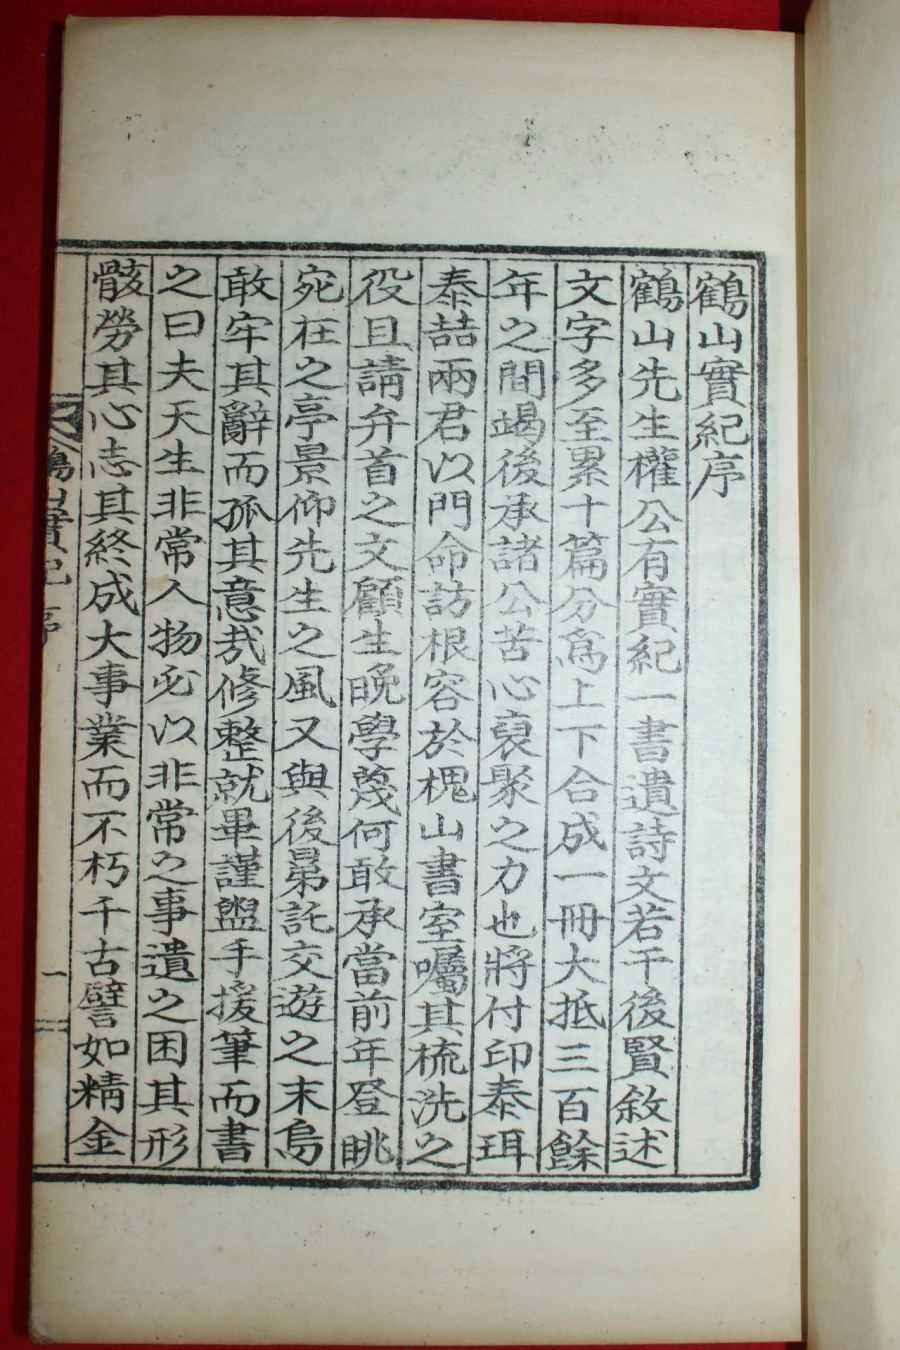 鶴山實紀序
鶴山先生權公有實紀一書遺詩文若干後賢敘述
文字多至累十篇分爲上下合成一冊大抵三百餘
年之間竭後承諸公苦心裒聚之力也將付印泰珥
泰喆兩君以門命訪根容於槐山書室囑其梳洗之
役且請弁首之文顧生晚學蔑何敢承當前年登眺
宛在之亭景仰先生之風又與後弟託交遊之末烏
敢牢其辭而孤其意哉修整就畢謹盥手援筆而書
之曰夫天生非常人物必以非常之事遺之困其形
骸勞其心志其終成大事業而不朽千古譬如精金
鶴山實紀 序 一